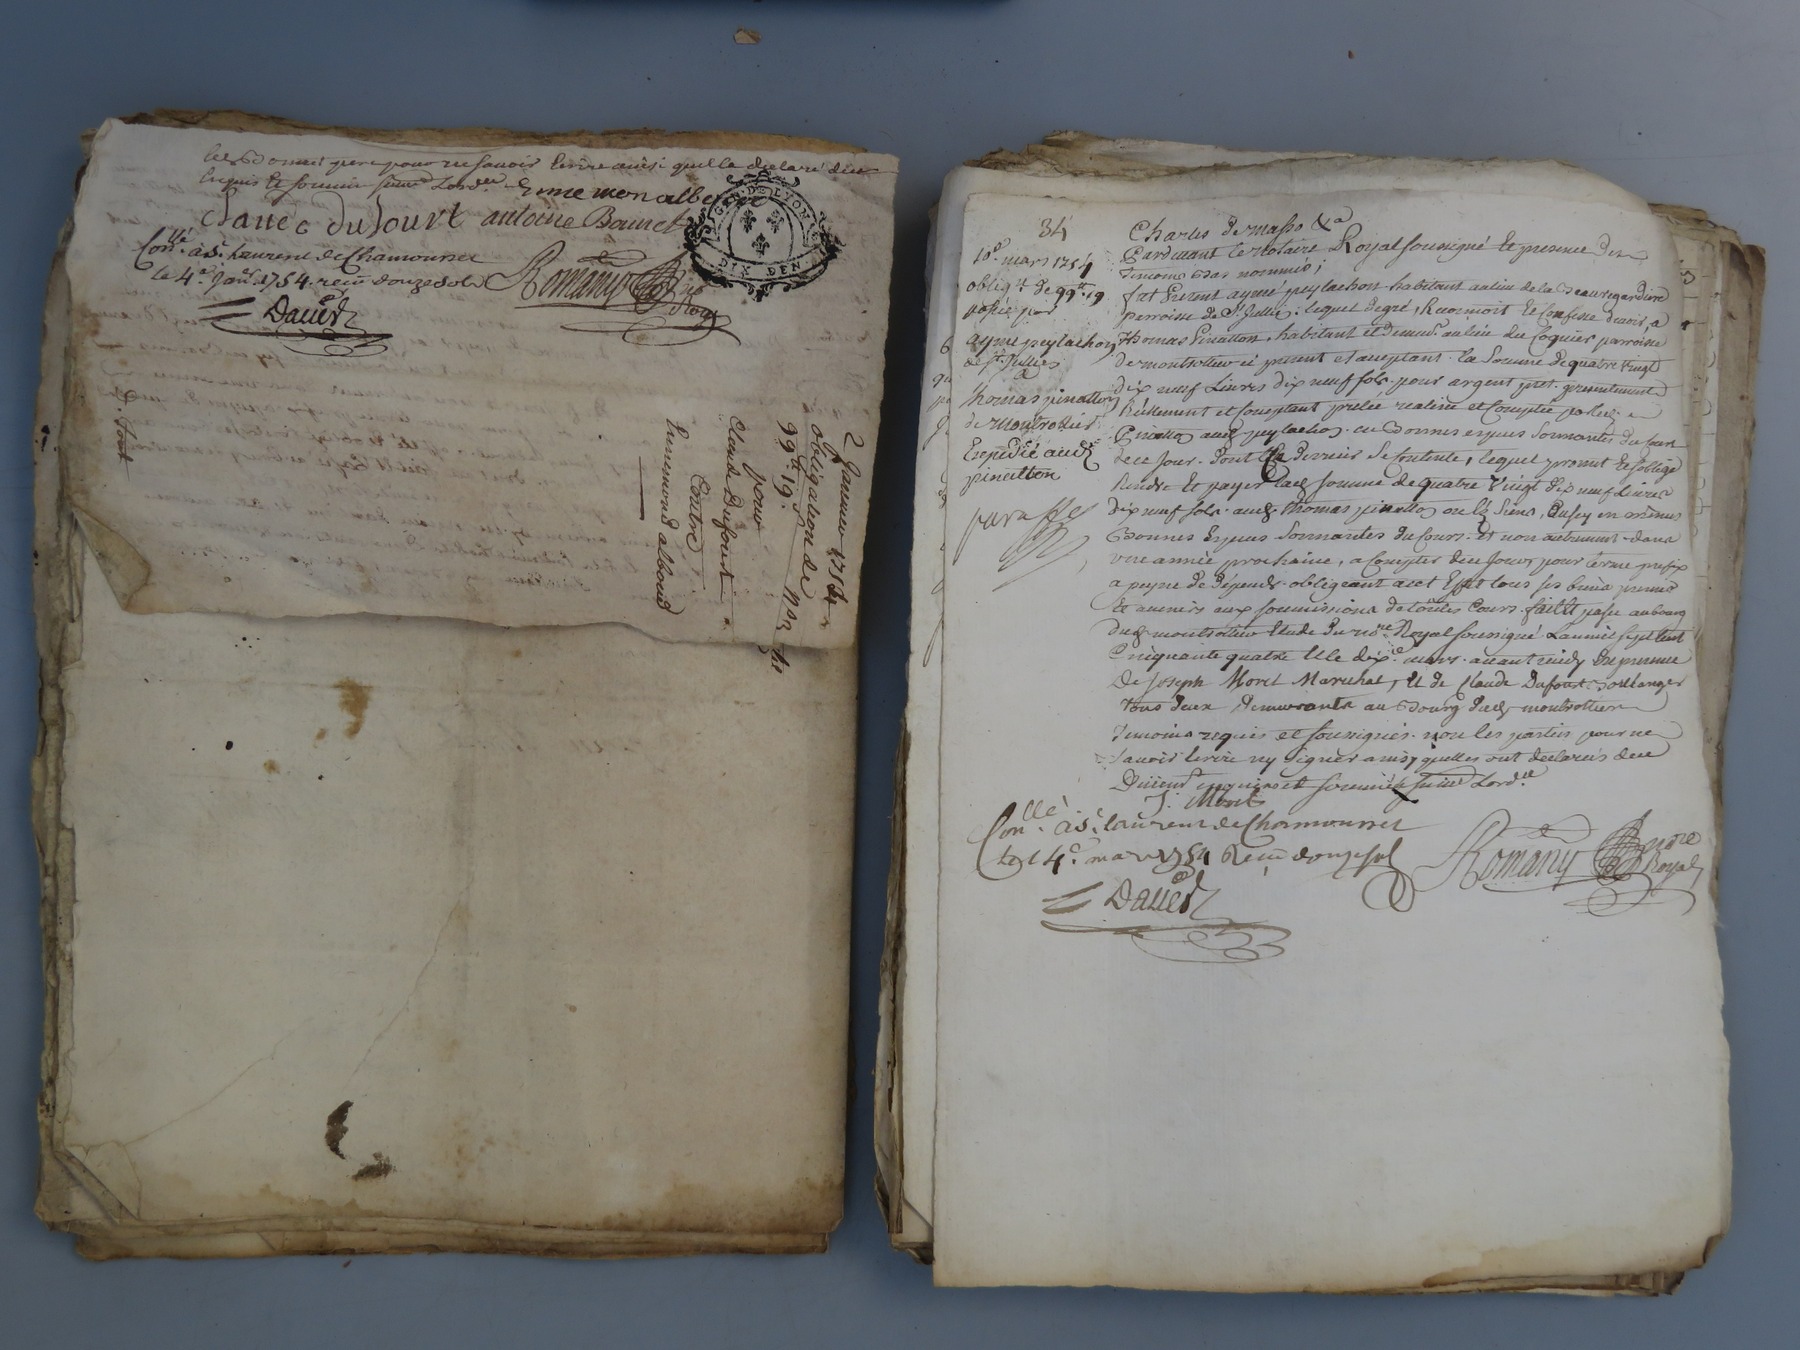 led Bonnet pere pour ne savoir Ecrire ainsi quelle declaré deue
Enquis Et sommé suiv.t Lord.ce
Eme mon albe
claude dufourt antoine Bonnet
GEN. DE LYON
DIX DEN.
Con.llé à S.t laurent de Chamousset
le 4.e Janv.er 1754. reçu douze sols
Romany n.re Roy.
Daued
2 Janvier 1754
obligation de
99.lt 19.s
pour
Claude Dufourt
Contre
Ennemond alboud
N.o 2
34
Charles de masso &.a
10.e mars 1754
oblig.t de 99.lt 19
passée par
ayme peylachon
de S.t Jullien
a
thomas pinatton
de Montrotier
Expedié aud.
pinatton
paraffe
Pardevant le Notaire Royal soussigné Et presence des
Temoins bas nommés;
fut Present aymé peylachon habitant au lieu de la Beauregardiere
perroisse de S.t Jullien. lequel degré, Reconnoit Et Confesse devoir, a
Thomas Pinatton, habitant et demeur.t au lieu du Coquier parroisse
de montrotier ici present et acceptant. la Somme de quatre vingt
dix neuf Livres dix neuf sols. pour argent pret. presentement
Réellement et
Pinatton aud. peylachon. en Bonnes especes Sonnantes du Cours
de ce Jour. Dont Se Contente, lequel promet Et soblige
Rendre Et payer lad. somme de quatre Vingt dix neuf Livres
dix neuf sols. aud. thomas pinatton ou les Siens, en mêmes
Bonnes Especes Sonnantes du Cours. Et non autrement. dans
une année prochaine, a Compter de ce Jour, pour terme prefix
a peyne de dépends. obligeant a cet Effet tous ses biens presents
Et avenirs aux soumissions de toutes Cours. fait Et passé au bourg
dud. montrotier Etude du no.re Royal soussigné Lan mil sept Cent
Cinquante quatre Et le dix.e mars. avant midy En presence
De Joseph Moret Marechal, Et de Claude Dufourt Boullanger
tous deux demeurants au Bourg dud. montrottier
Temoins requis et soussignés. non les parties pour ne
savoir Ecrire ny Signer ainsy quelles ont declarés deue
enquises et sommées suiv.t Lord.ce
J. Moret
Con.llé à S.t laurent de Chamousset
le 14.e mars 1754 Reçu douze sols
Romany no.re Royal
Daued